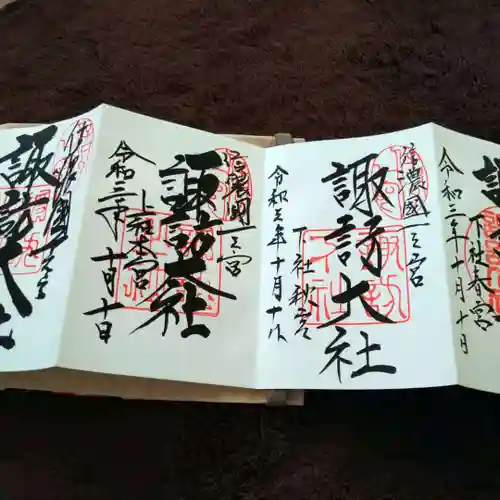 信濃國一之宮
諏訪大社
下社春宮
令和三年十月十日
信濃國一之宮
諏訪大社
下社秋宮
令和三年十月十日
信濃國一之宮
諏訪大社
上社本宮
令和三年十月十日
信濃國一之宮
諏訪大社